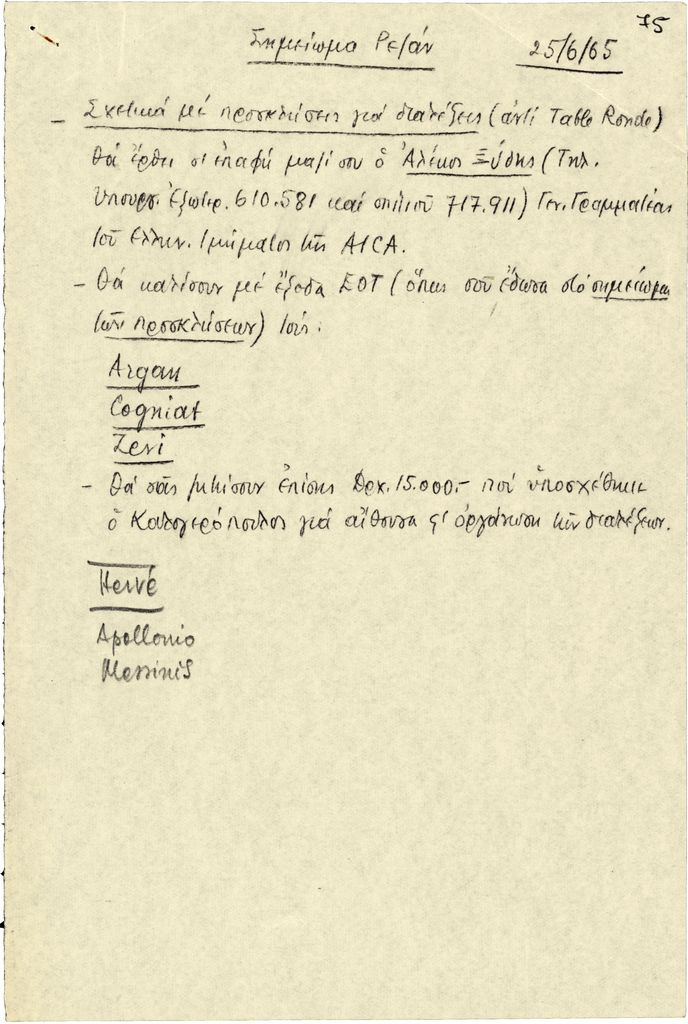 75
Σημείωμα Ρεζάν 25/6/65
- Σχετικά μέ προσκλήσεις γιά διαλέξεις (ἀντί Table Ronde)
θά ἔρθει σέ ἐπαφή μαζί σου ὁ Ἀλέκος Ξύδης (Τηλ.
Ὑπουργ. Ἐξωτερ. 610.581 καί σπιτιοῦ 717.911) Γεν. Γραμματέας
τοῦ Ἑλλην. τμήματος τῆς AICA.
- Θά καλέσουν μέ ἔξοδα ΕΟΤ (ὅπως σοῦ ἔδωσα στό σημείωμα
τῶν προσκλήσεων) τούς:
Argan
Cogniat
Zevi
- Θά σᾶς μετρήσουν ἐπίσης Δρχ. 15.000.- πού ὑποσχέθηκε
ὁ Καλογερόπουλος γιά αἴθουσα κ' ὀργάνωση τῶν διαλέξεων.
Hervé
Apollonio
Messinis